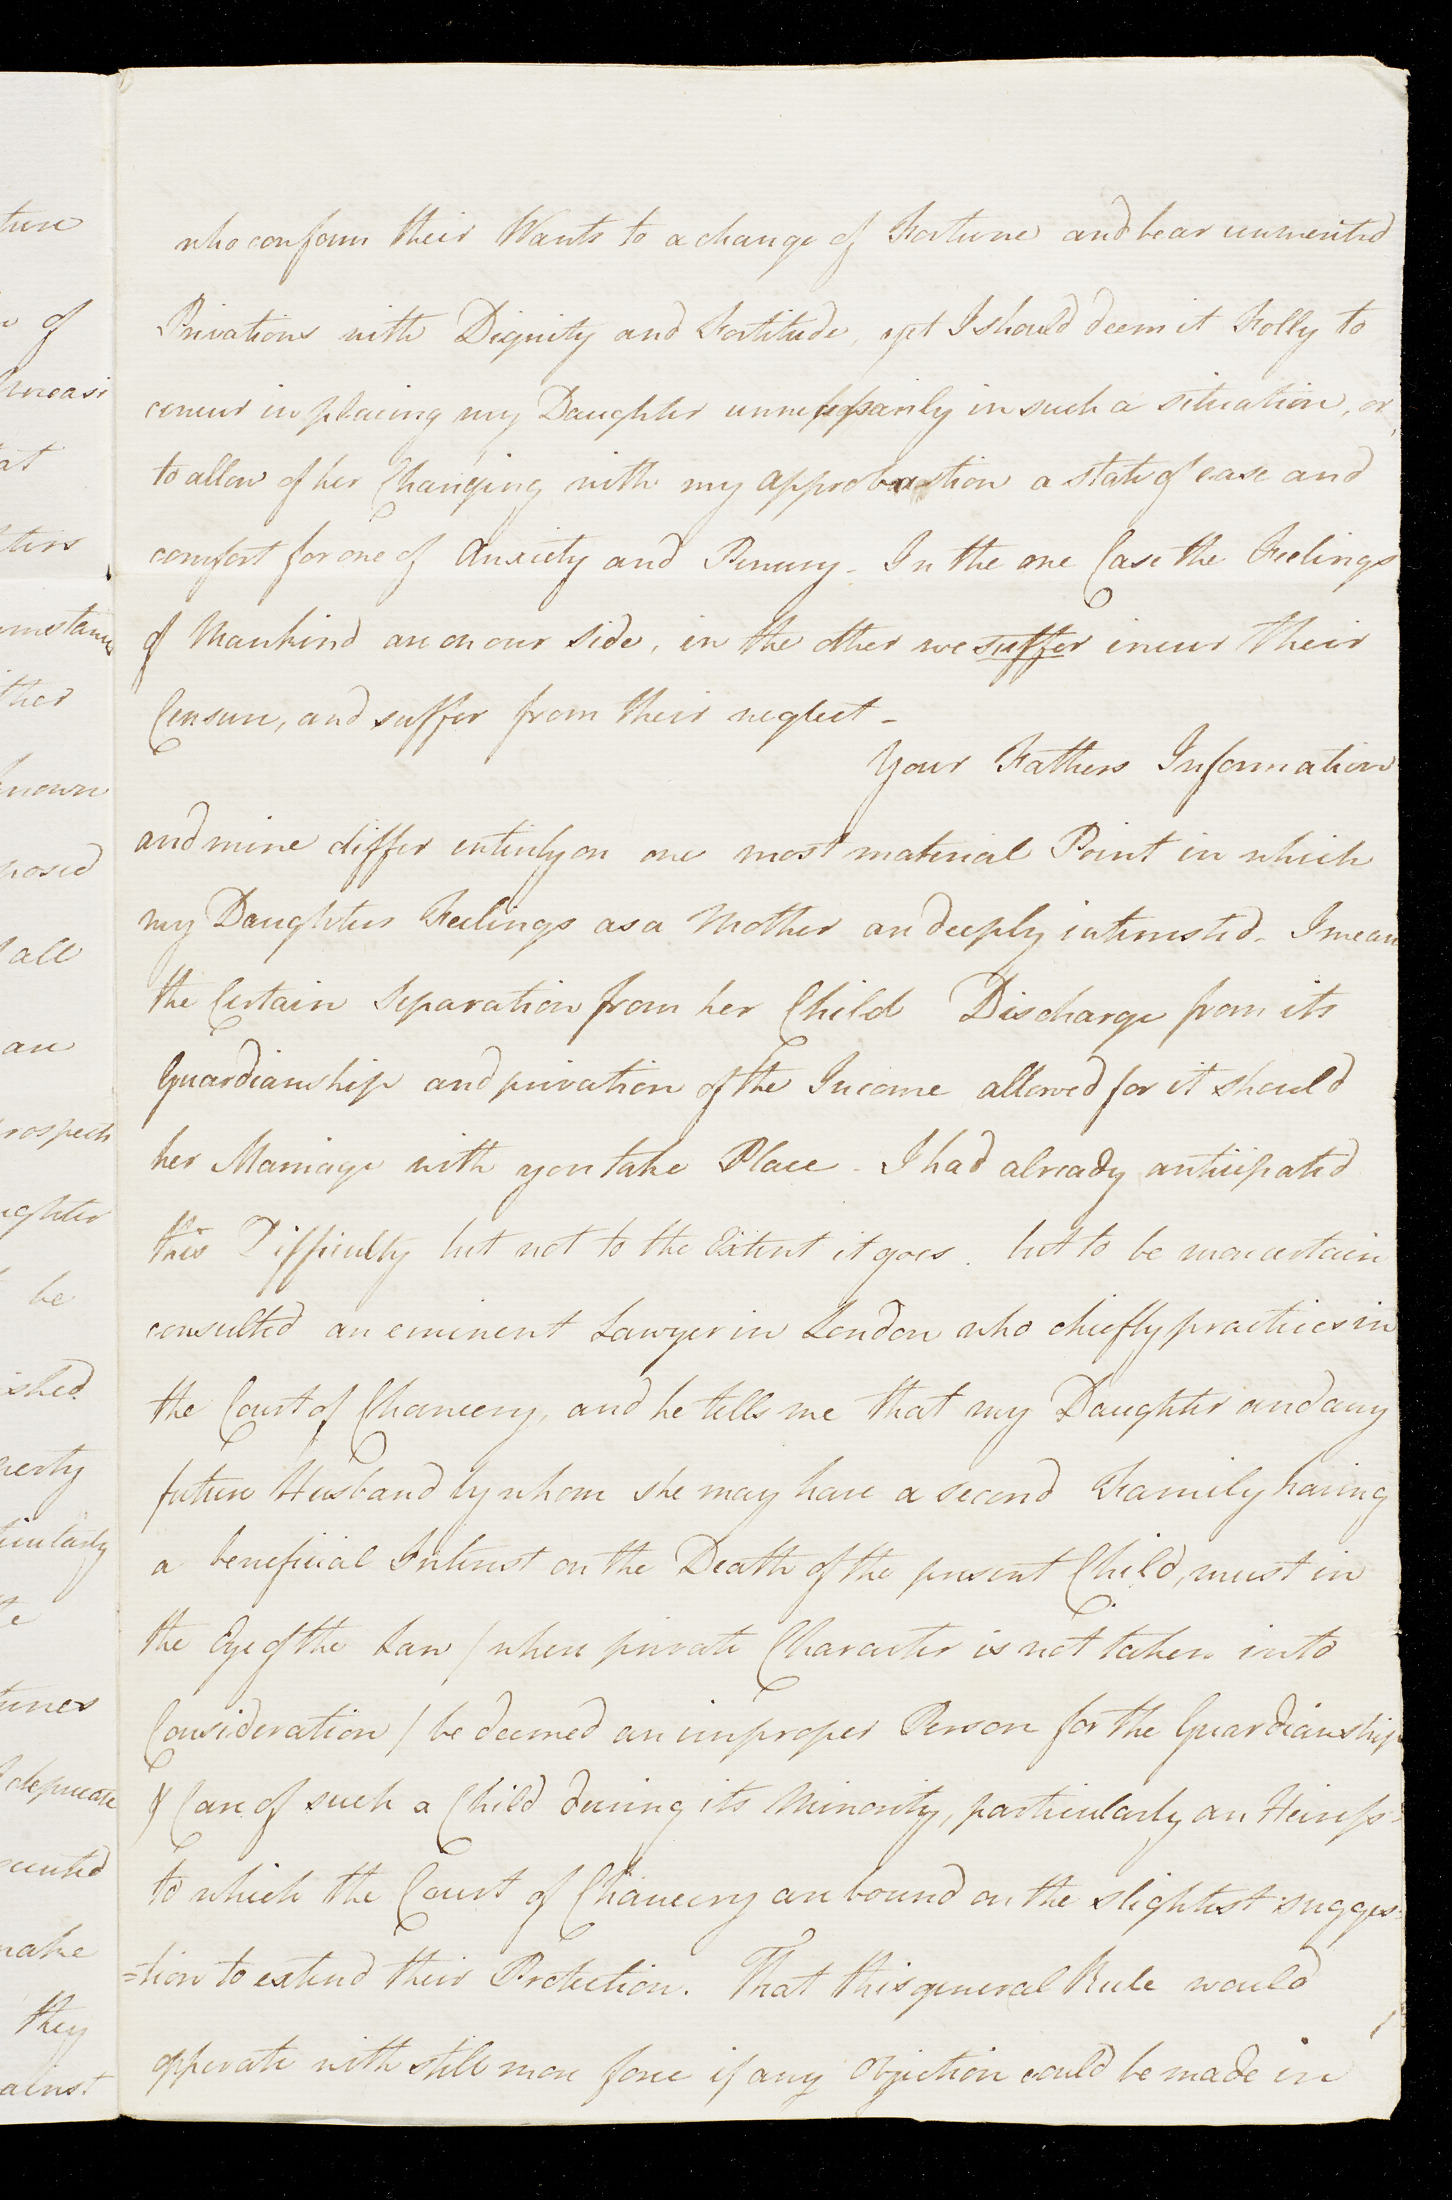 who conform their Wants to a change of Fortune and bear unmerited
Privations with Dignity and Fortitude, yet I should deem it Folly to
concur in placing my Daughter unnecessarily in such a situation, or
to allow of her Changing with my approbation a state of ease and
comfort for one of Anxiety and Penury - In the one Case the Feelings
of Mankind are on our side, in the other we suffer incur their
Censure, and suffer from their neglect -
Your Fathers Information
and mine differ entirely on one most material Point in which
my Daughters Feelings as a Mother are deeply interested - I mean
the Certain Separation from her Child Discharge from its
Guardianship and privation of the Income allowed for it should
her Marriage with you take Place - I had already anticipated
this Difficulty but not to the Extent it goes. but to be more certain
consulted an eminent Lawyer in London who chiefly practices in
the Court of Chancery, and he tells me that my Daughter and any
future Husband by whom she may have a second Family having
a beneficial Interest on the Death of the present Child, must in
the Eye of the Law / where private Character is not taken into
Consideration / be deemed an improper Person for the Guardianship
& Care of such a Child during its Minority, particularly an Heiress
to which the Court of Chancery are bound on the slightest sugges=
=tion to extend their Protection. That this general Rule would
opperate with still more force if any Objection could be made in
ture
of
at
ther
known
posed
all
are
rospects
ughter
be
ished
perty
ticularly
tunes
deprecate
make
they
ainst